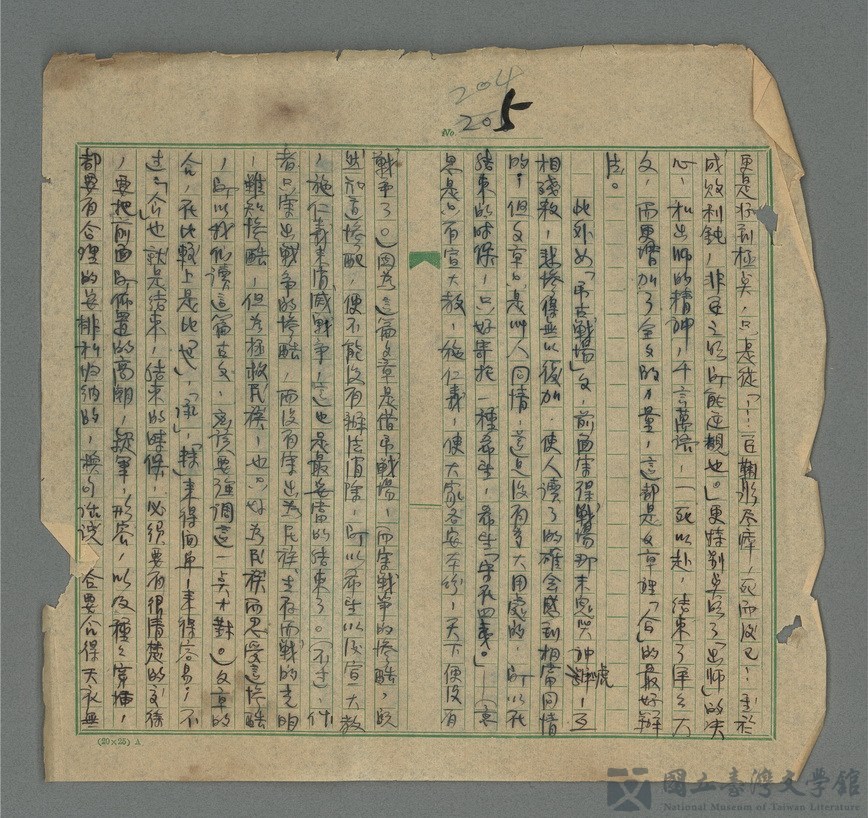 204
No. 205
更是好到極矣，只是從「！臣鞠躬尽瘁，死而後已！至於
成敗利鈍，非臣之明所能逆覩也。」更特別矣明了「出師」的决
心，和出師的精神，千言萬語，一死以赴，結束了
文，而更增加了全文的力量，這都是文章裡「合」的最好辦
法。
此外如「弔古戰場」文，前面寫得戰場那末
相殘殺，悲慘得無以復加，使人讀了的確會感到相當同情
的，但文章只是叫人同情，這是沒有多大用處的，所以在
結束的時候，只好寄托一種希望，希望「守在四夷。」
思是只有宣大教，施仁義，使大家各安本分，天下便沒有
戰爭了。因為這篇文章是借弔戰場，而寫戰爭的慘酷，既
然知道慘酷，便不能沒有辦法消除，所以希望以後宣大教
，施仁義來消滅戰爭，這也是最妥當的結束了。（不過，作
者只寫出戰爭的慘酷，而沒有寫出為民族生存而戰的光明
，雖知慘酷，但為拯救民族，也只好為民族而忍受這慘酷
，所以我們讀這篇古文，應該要強調這一矣才對。）文章的
合，在比較上是比「起」，「承」，「轉」來得簡單，來得容易，不
过「合」也就是結束，結束的時候，必須要有很清楚的交待
，要把前面所佈置的高朝，叙事，形容，以及種々穿插，
都要有合理的安排和归納的，換句话说，合要合得天衣無
(20×25) A
國立臺灣文學館
National Museum of Taiwan Literature